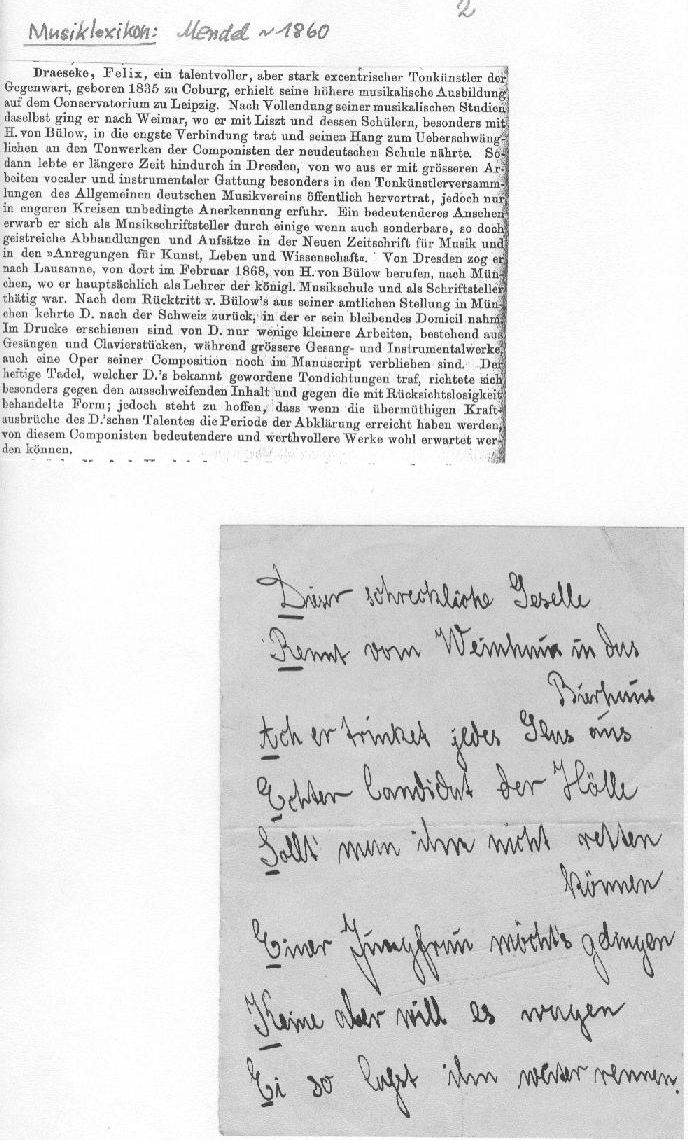 2
Musiklexikon: Mendel ~ 1860
Draeseke, Felix, ein talentvoller, aber stark excentrischer Tonkünstler der
Gegenwart, geboren 1835 zu Coburg, erhielt seine höhere musikalische Ausbildung
auf dem Conservatorium zu Leipzig. Nach Vollendung seiner musikalischen Studien
daselbst ging er nach Weimar, wo er mit Liszt und dessen Schülern, besonders mit
H. von Bülow, in die engste Verbindung trat und seinen Hang zum Ueberschwäng-
lichen an den Tonwerken der Componisten der neudeutschen Schule nährte. So-
dann lebte er längere Zeit hindurch in Dresden, von wo aus er mit grösseren Ar-
beiten vocaler und instrumentaler Gattung besonders in den Tonkünstlerversamm-
lungen des Allgemeinen deutschen Musikvereins öffentlich hervortrat, jedoch nur
in engeren Kreisen unbedingte Anerkennung erfuhr. Ein bedeutenderes Ansehen
erwarb er sich als Musikschriftsteller durch einige wenn auch sonderbare, so doch
geistreiche Abhandlungen und Aufsätze in der Neuen Zeitschrift für Musik und
in den »Anregungen für Kunst, Leben und Wissenschaft«. Von Dresden zog er
nach Lausanne, von dort im Februar 1868, von H. von Bülow berufen, nach Mün-
chen, wo er hauptsächlich als Lehrer der königl. Musikschule und als Schriftsteller
thätig war. Nach dem Rücktritt v. Bülow's aus seiner amtlichen Stellung in Mün-
chen kehrte D. nach der Schweiz zurück, in der er sein bleibendes Domicil nahm.
Im Drucke erschienen sind von D. nur wenige kleinere Arbeiten, bestehend aus
Gesängen und Clavierstücken, während grössere Gesang- und Instrumentalwerke,
auch eine Oper seiner Composition noch im Manuscript verblieben sind. Der
heftige Tadel, welcher D.'s bekannt gewordene Tondichtungen traf, richtete sich
besonders gegen den ausschweifenden Inhalt und gegen die mit Rücksichtslosigkeit
behandelte Form; jedoch steht zu hoffen, dass wenn die übermüthigen Kraft-
ausbrüche des D.'schen Talentes die Periode der Abklärung erreicht haben werden,
von diesem Componisten bedeutendere und werthvollere Werke wohl erwartet wer-
den können.
Dieser schreckliche Geselle
Rennt vom Weinhaus in das
Bierhaus
Ach er trinket jedes Glas aus
Echter Candidat der Hölle
Sollt' man ihn nicht retten
können
Einer Jungfrau möcht's gelingen
Keine aber will es wagen
Ei so lasst ihn weiter rennen.